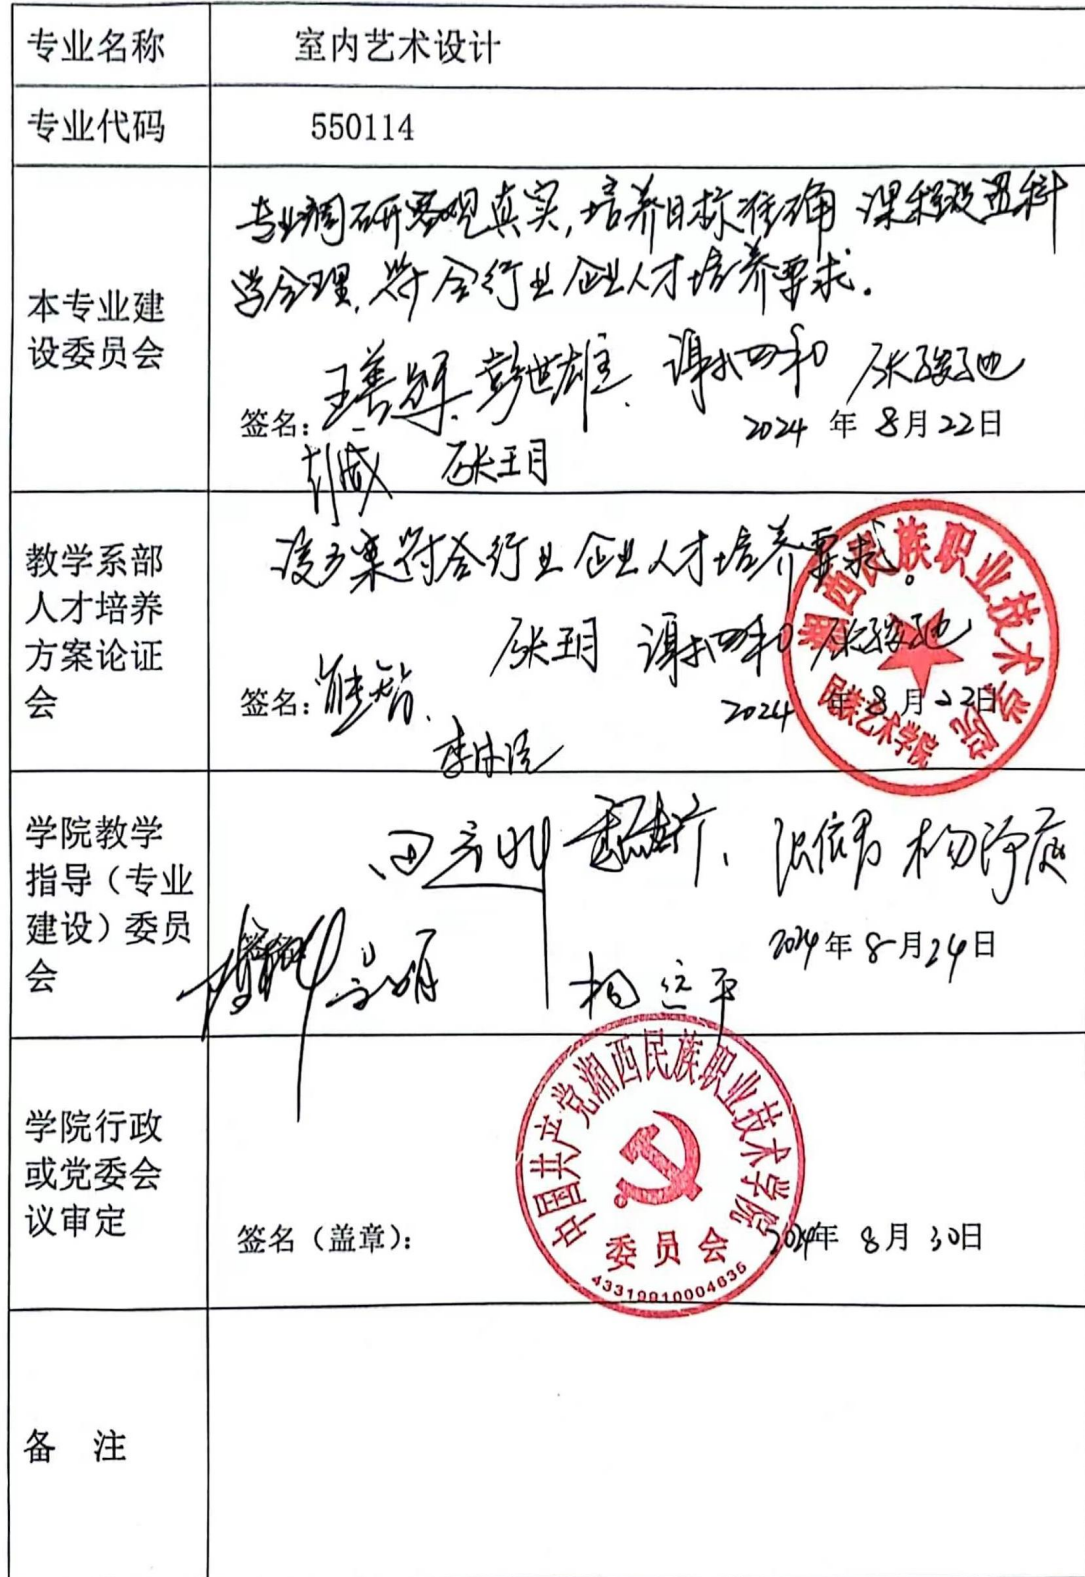 专业名称 室内艺术设计
专业代码 550114
本专业建
设委员会
专业调研客观真实,培养目标准确 课程设置科
学合理,符合行业企业人才培养要求。
王善冠、彭世雄、谭四和 张骏驰
签名: 2024 年 8月22日
彭威 张玥
教学系部
人才培养
方案论证
会
该方案符合行业企业人才培养要求。
张玥 谭四和 张骏驰
签名:熊智、 2024 年 8 月 22日
湘西民族职业技术学院
民族艺术学院
学院教学
指导(专业
建设)委员
会
2024年 8月24日
杨远平
学院行政
或党委会
议审定
中国共产党湘西民族职业技术学院
委员会
43319910004635
签名(盖章): 2024年 8月 30日
备 注